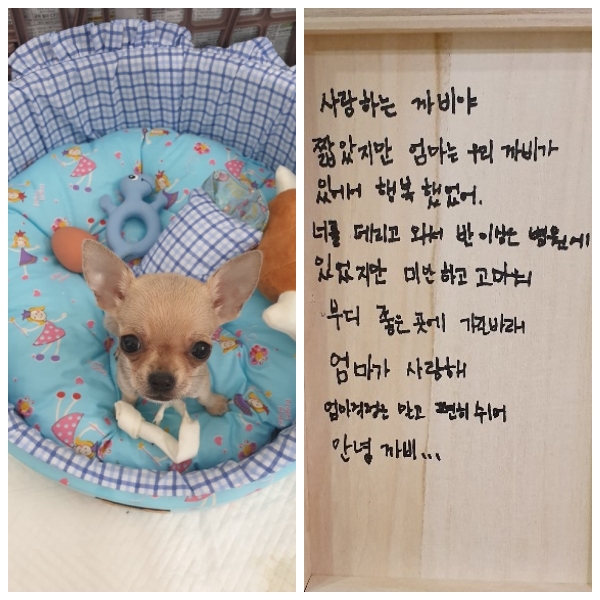 사랑하는 까비야
짧았지만 엄마는 우리 까비가
있어서 행복했었어.
너를 데리고 와서 반이상은 병원에
있었지만 미안하고 고마워
부디 좋은곳에 가길바래
엄마가 사랑해
엄마걱정은 말고 편히쉬어
안녕 까비...